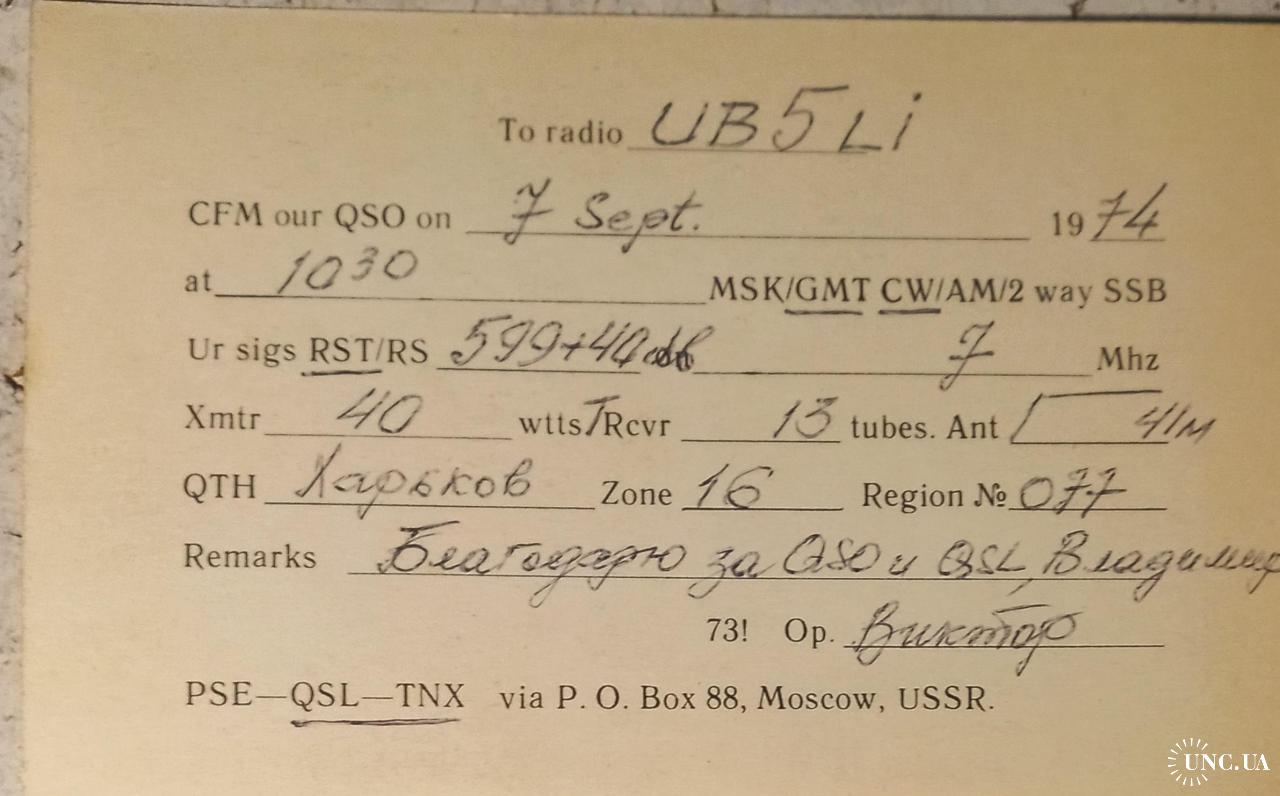 To radio UB5Li
CFM our QSO on 7 Sept. 1974
at 10³⁰ MSK/GMT CW/AM/2 way SSB
Ur sigs RST/RS 599+40db 7 Mhz
Xmtr 40 wtts/Rcvr 13 tubes. Ant 41м
QTH Харьков Zone 16 Region № 077
Remarks Благодарю за QSO и QSL, Владимир
73! Op. Виктор
PSE—QSL—TNX via P. O. Box 88, Moscow, USSR.
UNC.UA